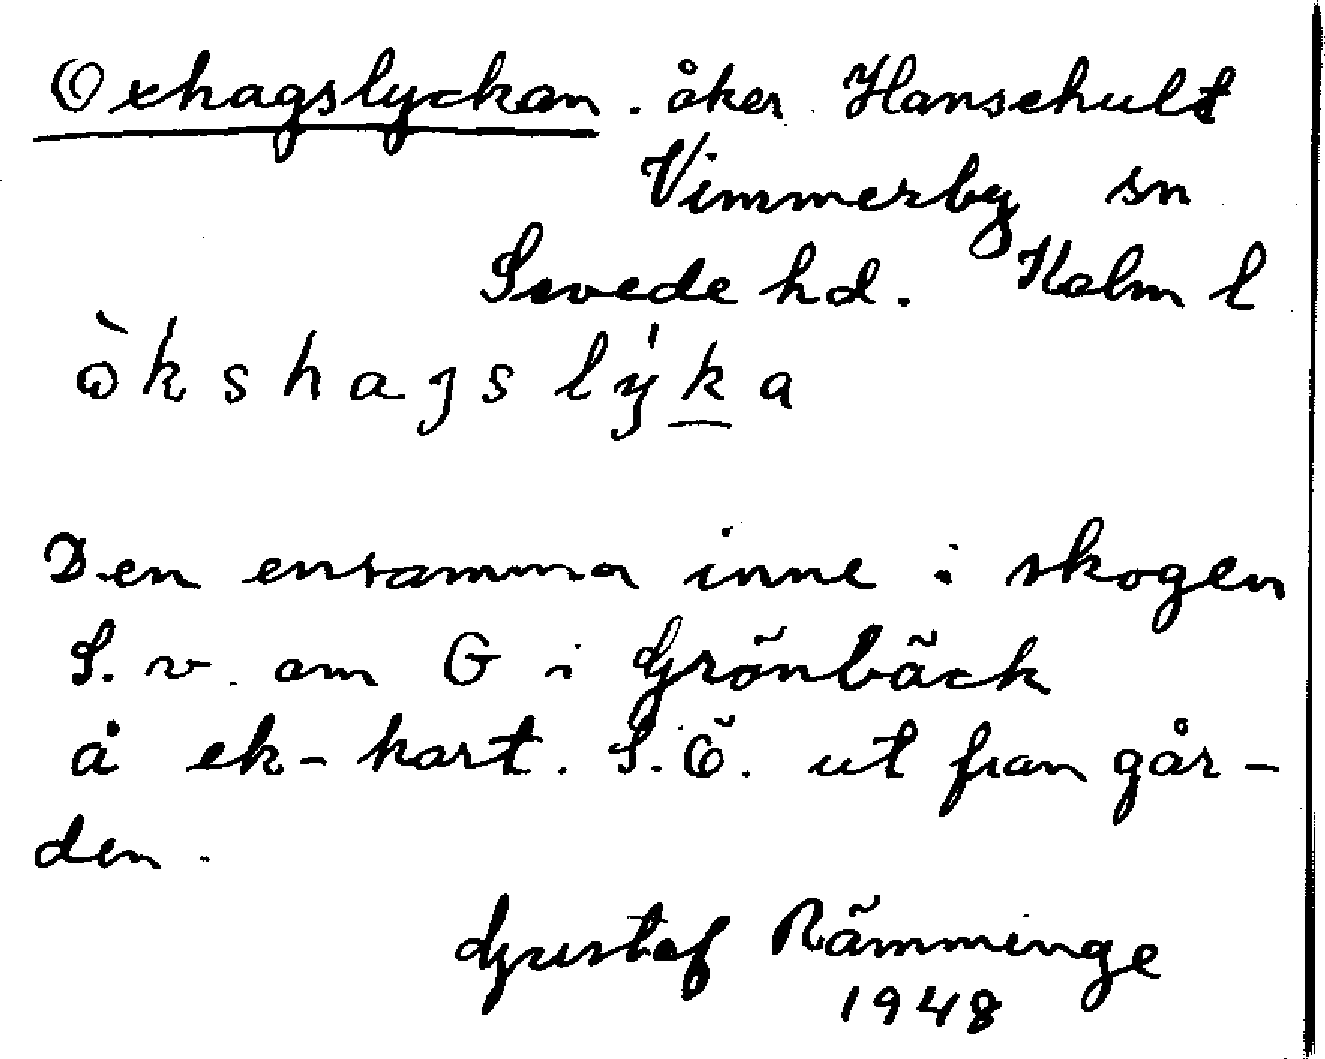 Oxhagslyckan. åker Hanschult
Vimmerby sn
Sevede hd. Kalm l
òkshagslýka
Den ensamma inne i skogen
S. v. om G i Grönbäck
å ek-kart. S.Ö. ut fran går-
den.
Gustaf Rämminge
1948